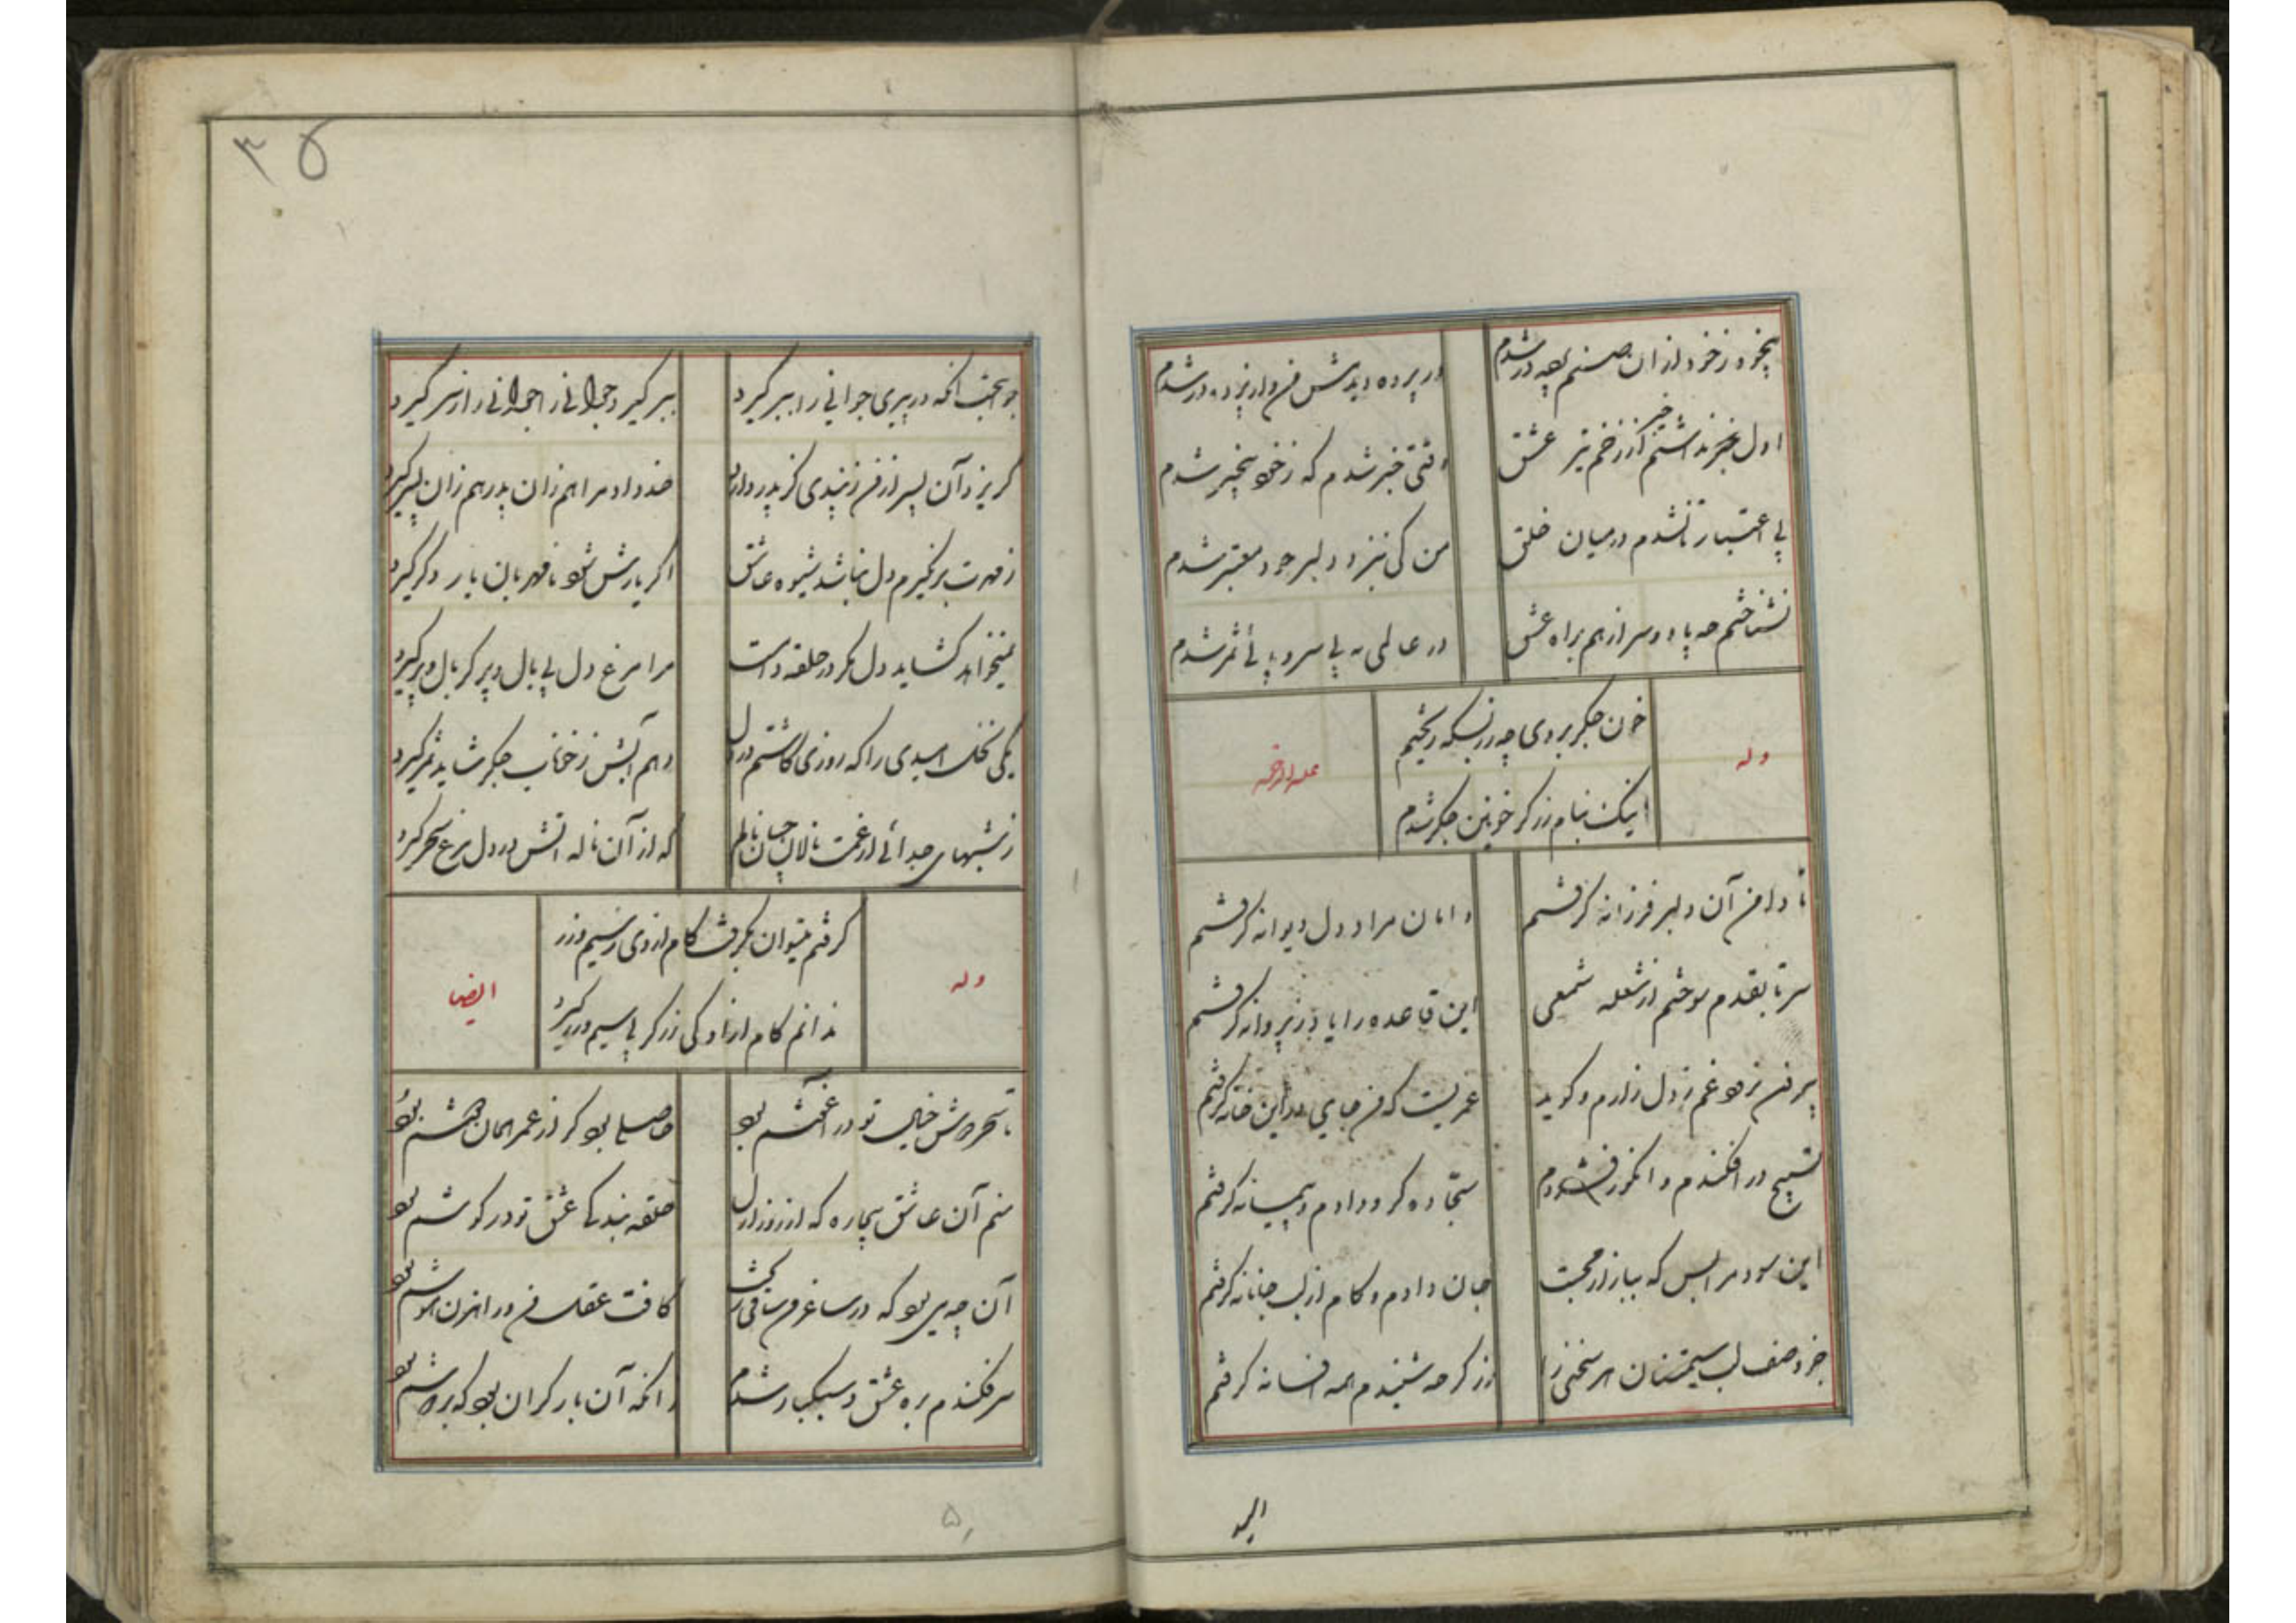 بیخود ز خود از آن صنم پرده در شدم
در پرده دیدمش من و از پرده در شدم
اول خبر نداشتم از زخم تیر عشق
وقتی خبر شدم که ز خود بیخبر شدم
بی اعتبار تا نشدم در میان خلق
من کی بنزد دلبر خود معتبر شدم
نشناختم چه پا و سر از هم براه عشق
در عالمی به بی سر و پائی ثمر شدم
وله
علیه الرحمه
خون جگر بروی چو زر بسکه ریختم
اینک بنام زرگر خونین جگر شدم
تا دامن آن دلبر فرزانه گرفتم
دامان مراد دل دیوانه گرفتم
سر تا بقدم سوختم از شعله شمعی
این قاعده را یاد ز پروانه گرفتم
بیرون نرود غم ز دل زارم و گوید
عمریست که من جای در این خانه گرفتم
تسبیح در افکندم و انگور فشردم
سجاده گرو دادم و پیمانه گرفتم
این سود مرا بس که ببازار محبت
جان دادم و کام از لب جانانه گرفتم
جز وصف لب سیمتنان هر سخنی را
زرگر چه شنیدم همه افسانه گرفتم
۳۵
جوانبخت آنکه در پیری جوانی را ببر گیرد
ببر گیرد جوانی را جوانی را ز سر گیرد
گریزد آن پسر از من ز پندی کز پدر دارد
خدا داد مرا هم زان پدر هم زان پسر گیرد
ز مهرت برنگیرم دل نباشد شیوه عاشق
اگر یارش شود نامهربان یار دگر گیرد
نمیخواهد گشاید دل مگر در حلقه دامت
مرا مرغ دل بی بال و پر گر بال و پر گیرد
یکی نخل امیدی را که روزی کاشتم در دل
دهم آبش ز خوناب جگر شاید ثمر گیرد
ز شبهای جدائی از غمت نالان چنان نالم
که از آن ناله آتش در دل مرغ سحر گیرد
وله
ایضا
گرفتم میتوان بگرفت کام از وی ز سیم و زر
ندانم کام از او کی زرگر بی سیم و زر گیرد
تا سحر دوش خیال تو در آغوشم بود
حاصلی بود گر از عمر همان دوشم بود
منم آن عاشق بیچاره که از روز ازل
حلقه بندگی عشق تو در گوشم بود
آن چه می بود که در ساغر من ساقی ریخت
کافت عقل من و راهزن هوشم بود
سر فکندم بره عشق و سبکبار شدم
زانکه آن بار گران بود که بر دوشم بود